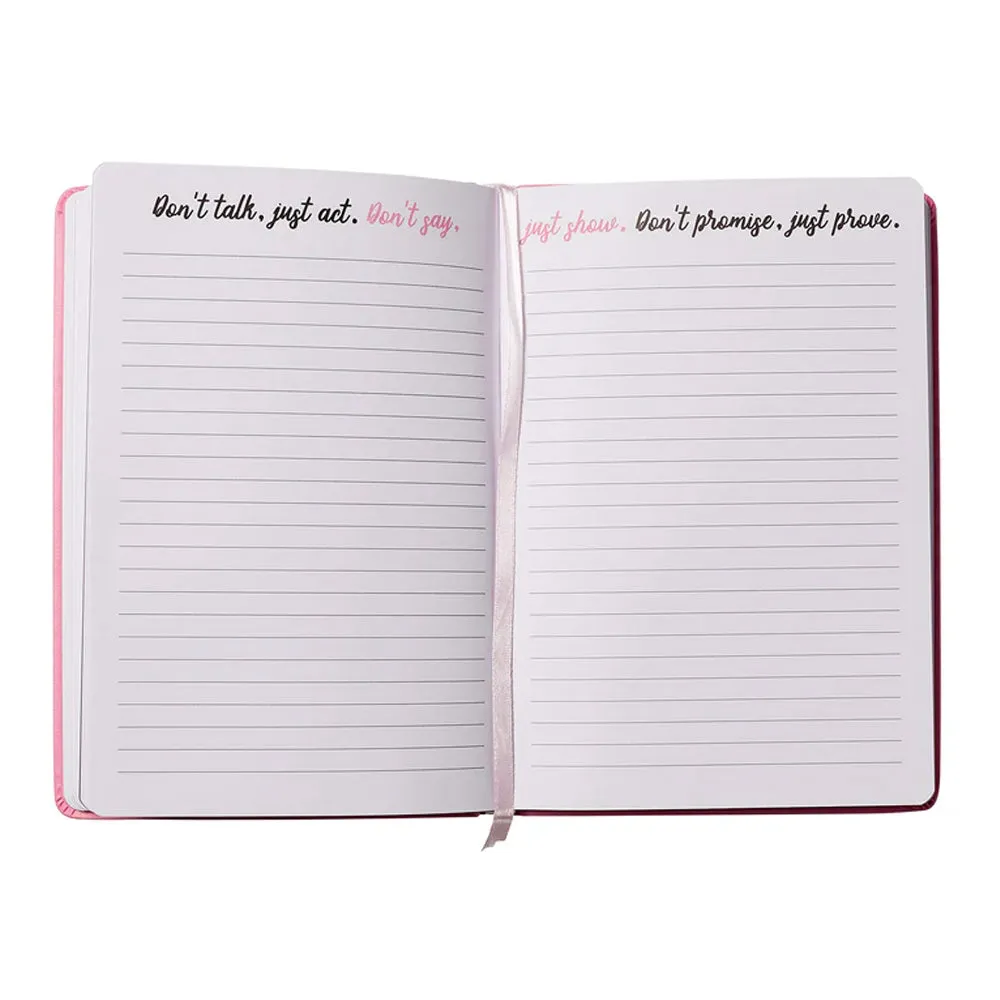 Don't talk, just act. Don't say,
just show. Don't promise, just prove.